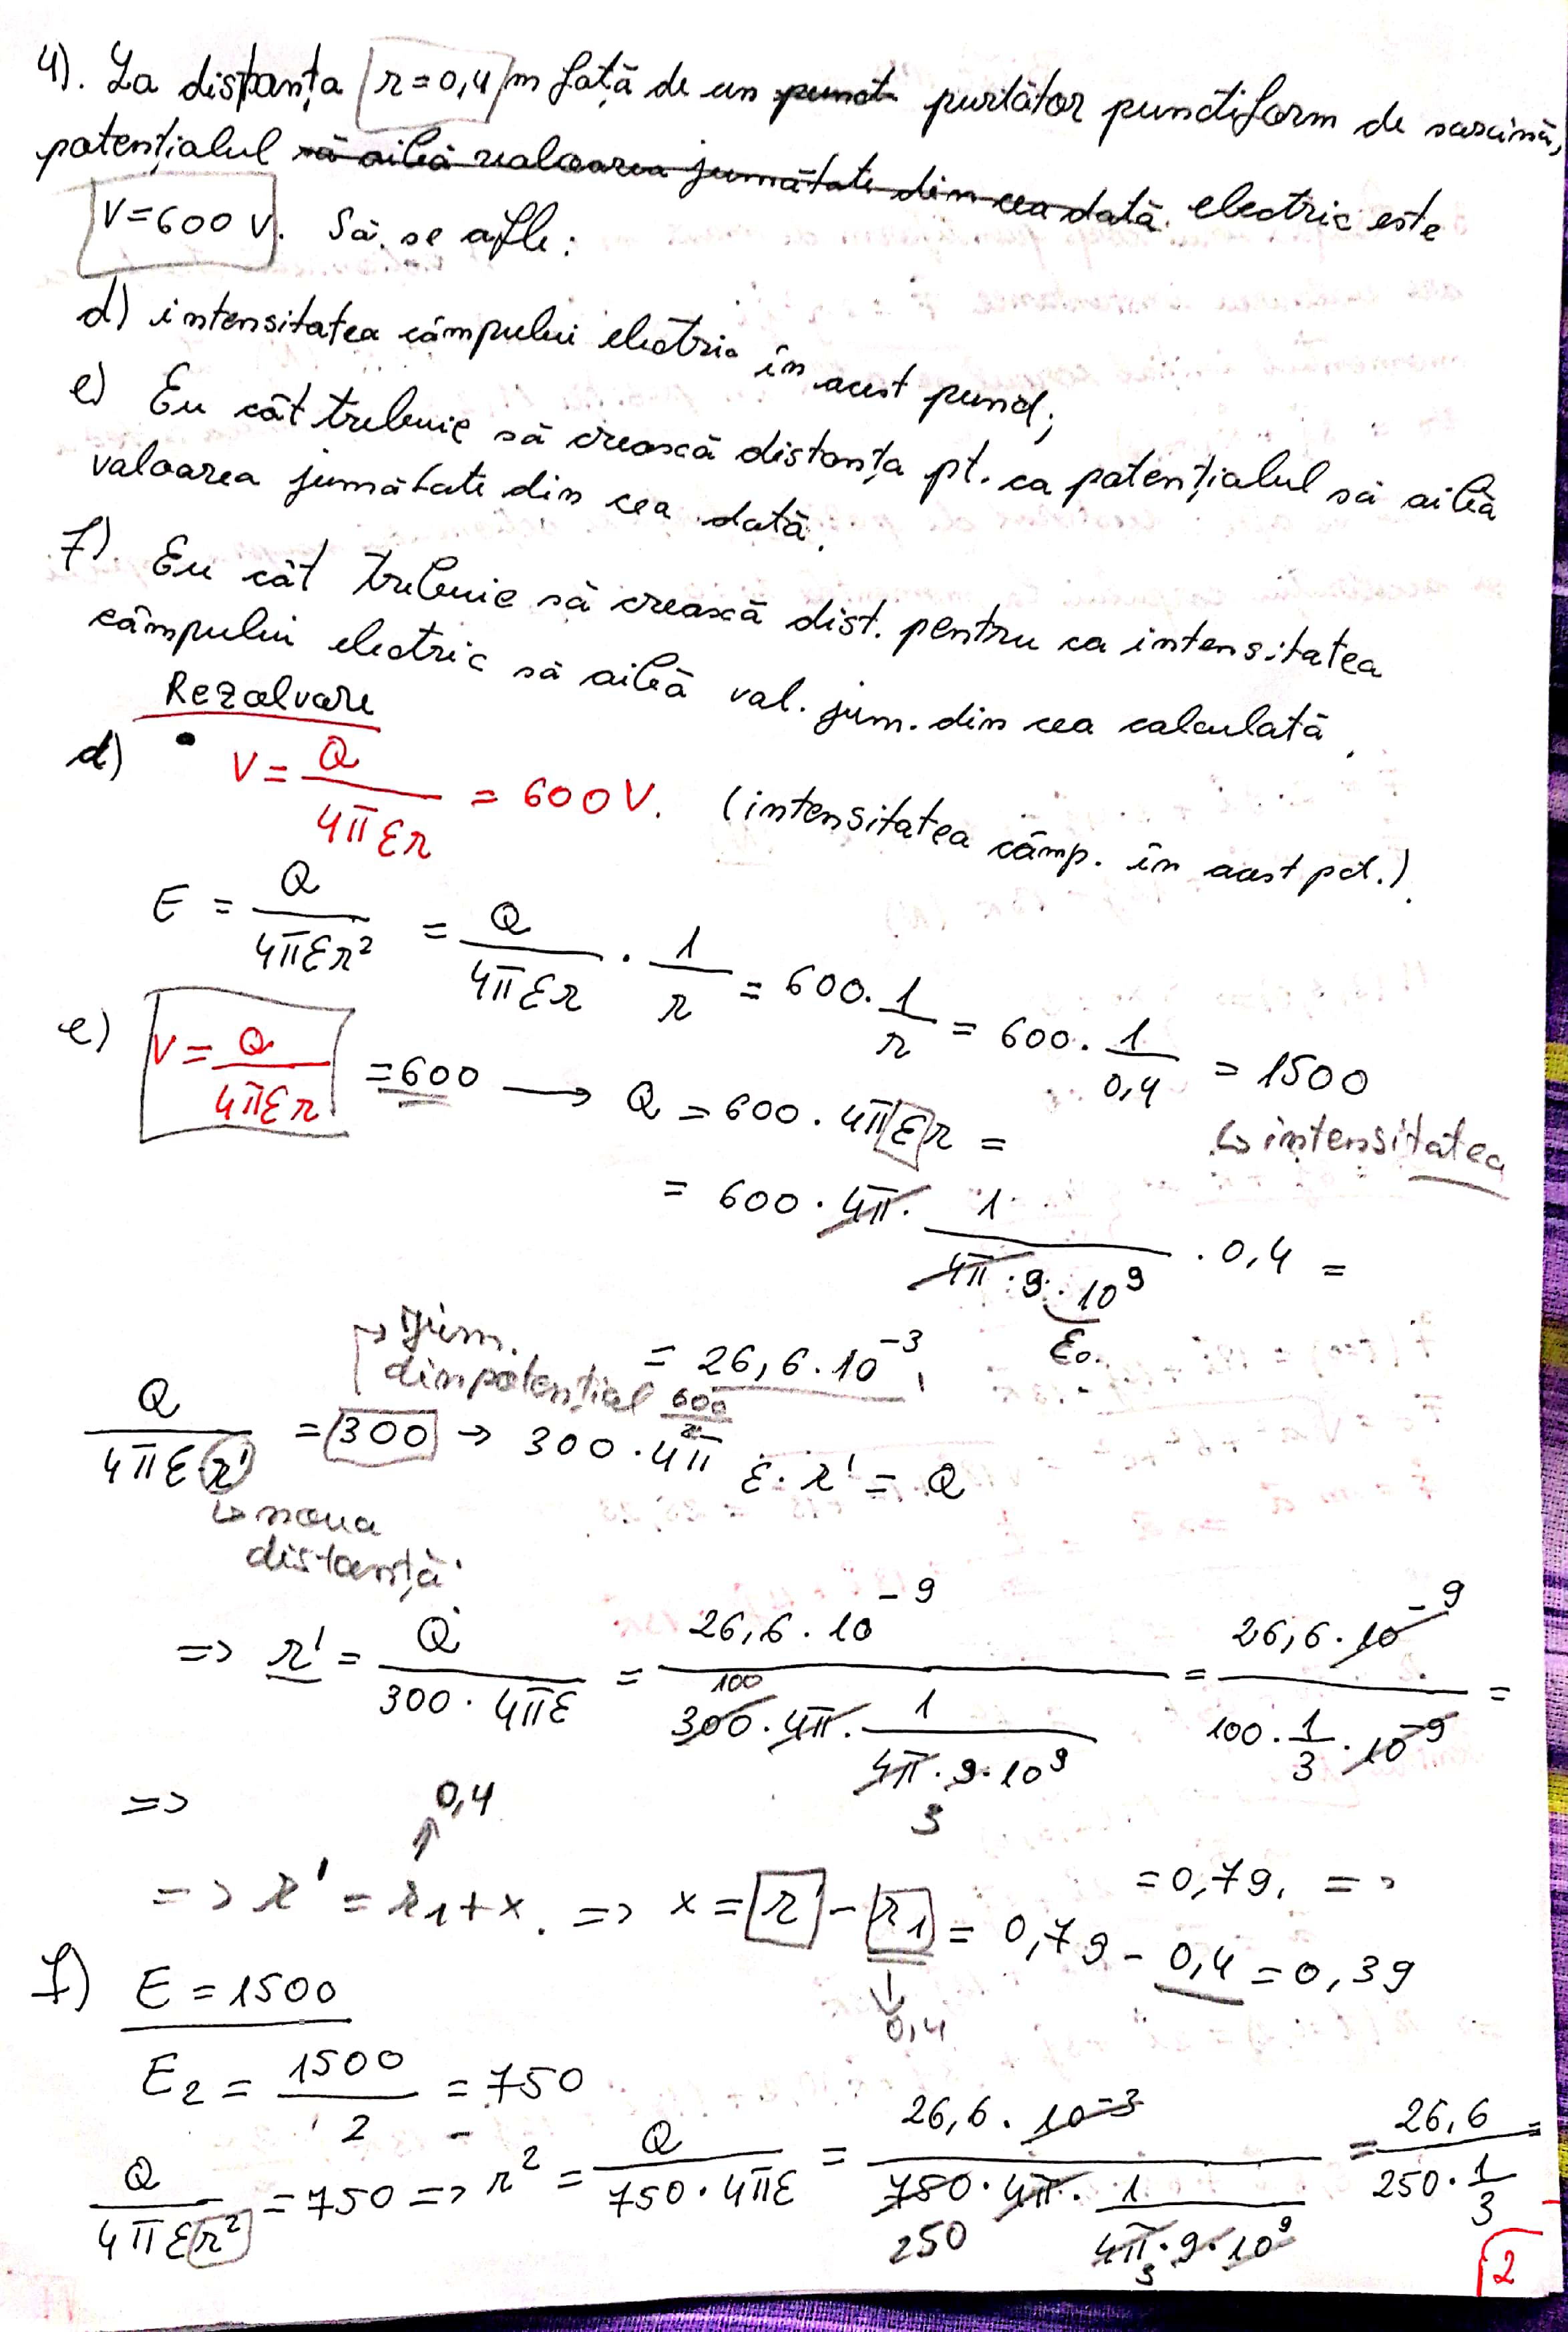 4). La distanța r=0,4 m față de un punct purtător punctiform de sarcină,
potențialul să aibă valoarea jumătate din cea dată. electric este
V=600 V. Să se afle:
d) intensitatea câmpului electric în acest punct;
e) Cu cât trebuie să crească distanța pt. ca potențialul să aibă
valoarea jumătate din cea dată.
f). Cu cât trebuie să crească dist. pentru ca intensitatea
câmpului electric să aibă val. jum. din cea calculată.
Rezolvare
d) V = Q / 4πεr = 600V. (intensitatea câmp. în acest pct.).
E = Q / 4πεr² = Q / 4πεr · 1 / r = 600 · 1 / r = 600 · 1 / 0,4 = 1500
↳ intensitatea
e) V = Q / 4πεr = 600 → Q = 600 · 4πεr =
= 600 · 4π · 1 / 4π · 9 · 10⁹ · 0,4 =
ε₀.
= 26,6 · 10⁻³
→ Jum.
din potențial 600 / 2
Q / 4πε r' = 300 → 300 · 4π ε · r' = Q
↳ noua
distanță
=> r' = Q / 300 · 4πε = 26,6 · 10⁻⁹ / 300 · 4π · 1 / 4π · 9 · 10⁹ = 26,6 · 10⁻⁹ / 100 · 1 / 3 · 10⁻⁹ =
100
3
=> 0,4
= 0,79. =>
=> r' = r₁ + x. => x = r' - r₁ = 0,79 - 0,4 = 0,39
0,4
f) E = 1500
E₂ = 1500 / 2 = 750
Q / 4πεr² = 750 => r² = Q / 750 · 4πε = 26,6 · 10⁻³ / 750 · 4π · 1 / 4π · 9 · 10⁹ = 26,6 / 250 · 1 / 3 =
250
3
2